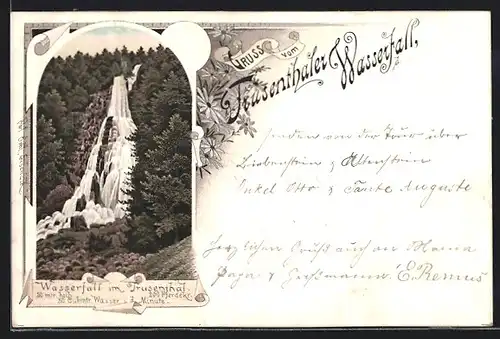 GRUSS vom
Trusenthaler Wasserfall,
senden von der Tour über
Liebenstein & Altenstein
Onkel Otto & Tante Auguste
Herzlichen Gruß auch an Mama
Papa & E. Remus
Wasserfall im Trusenthal.
50 mtr. hoch. 300 Pferdekr.
Wasser Minute.